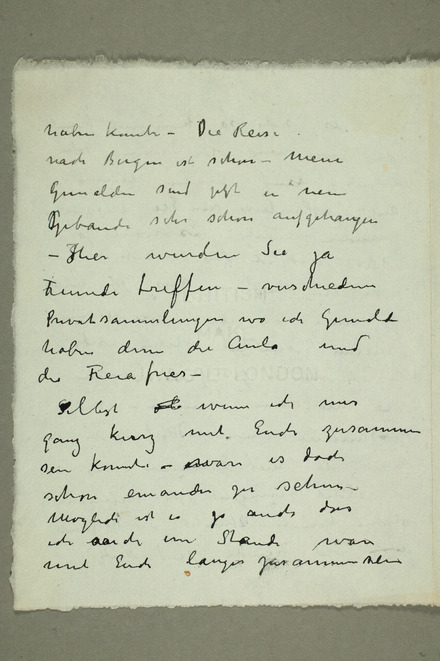 haben konnte – Die Reise.
nach Bergen ist schon – Meine
Gemelden sind jetzt in neue
Gebaude sehr schon aufgehangen
– Hier wurden Sie ja
Freunde treffen – verschiedene
Privatsammlungen wo ich Gemelde
haben dann die Aula und
die Freia fries –
Selbst wenn ich nur
ganz kurz mit Ende zusammen
sein konnte – ware es doch
schon einander zu sehen –
Moglich ist es ja auch das
ich auch im Stande ware
mit Ende langer zusammen sein